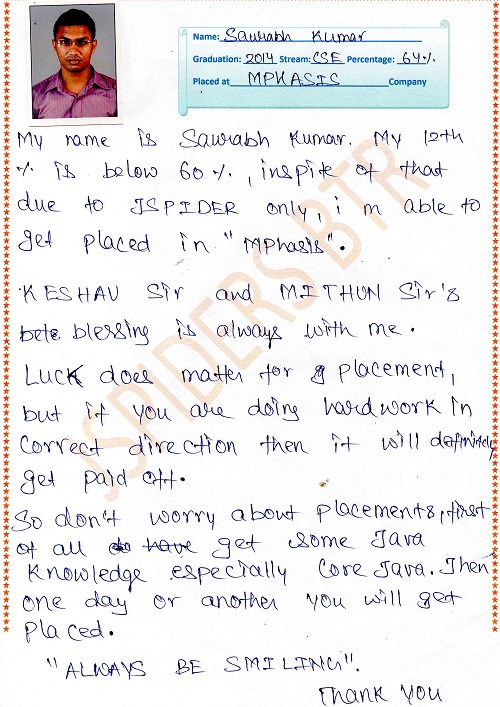 Name: Saurabh Kumar
Graduation: 2014 Stream: CSE Percentage: 64%
Placed at MPHASIS Company
My name is Saurabh Kumar. My 12th
% is below 60%, inspite of that
due to JSPIDER only, i m able to
get placed in "MPhasis".
KESHAV Sir and MITHUN Sir's
blessing is always with me.
Luck does matter for placement,
but if you are doing hardwork in
correct direction then it will definitely
get paid off.
So don't worry about placements, first
of all do have get some Java
knowledge especially Core Java. Then
one day or another you will get
placed.
"ALWAYS BE SMILING".
Thank you
JSPIDERS BTR